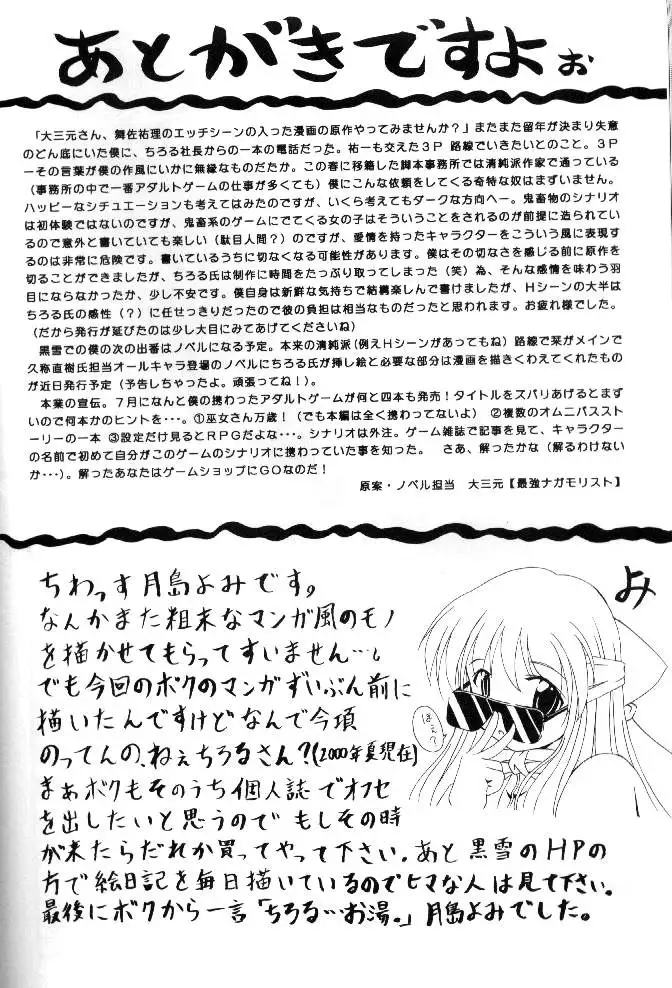 あとがきですよぉ
「大三元さん、舞佐祐理のエッチシーンの入った漫画の原作やってみませんか？」またまた留年が決まり失意
のどん底にいた僕に、ちろる社長からの一本の電話だった。祐一も交えた３Ｐ 路線でいきたいとのこと。３Ｐ
ーその言葉が僕の作風にいかに無縁なものだたか。この春に移籍した脚本事務所では清純派作家で通っている
（事務所の中で一番アダルトゲームの仕事が多くても）僕にこんな依頼をしてくる奇特な奴はまずいません。
ハッピーなシチュエーションも考えてはみたのですが、いくら考えてもダークな方向へー。鬼畜物のシナリオ
は初体験ではないのですが、鬼畜系のゲームにでてくる女の子はそういうことをされるのが前提に造られてい
るので意外と書いていても楽しい（駄目人間？）のですが、愛情を持ったキャラクターをこういう風に表現す
るのは非常に危険です。書いているうちに切なくなる可能性があります。僕はその切なさを感じる前に原作を
切ることができましたが、ちろる氏は制作に時間をたっぷり取ってしまった（笑）為、そんな感情を味わう羽
目にならなかったか、少し不安です。僕自身は新鮮な気持ちで結構楽しんで書けましたが、Ｈシーンの大半は
ちろる氏の感性（？）に任せっきりだったので彼の負担は相当なものだったと思われます。お疲れ様でした。
（だから発行が延びたのは少し大目にみてあげてくださいね）
黒雪での僕の次の出番はノベルになる予定。本来の清純派（例えＨシーンがあってもね）路線で栞がメインで
久弥直樹氏担当オールキャラ登場のノベルにちろる氏が挿し絵と必要な部分は漫画を描きくわえてくれたもの
が近日発行予定（予告しちゃったよ。頑張ってね！）。
本業の宣伝。７月になんと僕の携わったアダルトゲームが何と四本も発売！タイトルをズバリあげるとまず
いので何本かのヒントを・・・。①巫女さん万歳！（でも本編は全く携わってないよ） ②複数のオムニバスス
トーリーの一本 ③設定だけ見るとＲＰＧだよな・・・。シナリオは外注。ゲーム雑誌で記事を見て、キャラクター
の名前で初めて自分がこのゲームのシナリオに携わっていた事を知った。 さあ、解ったかな（解るわけない
か・・・）。解ったあなたはゲームショップにＧＯなのだ！
原案・ノベル担当 大三元【最強ナガモリスト】
ちわっす月島よみです。
なんかまた粗末なマンガ風のモノ
を描かせてもらってすいません…。
でも今回のボクのマンガずいぶん前に
描いたんですけどなんで今頃
のってんの、ねぇちろるさん？(2000年夏現在)
まぁボクもそのうち個人誌でオフセ
を出したいと思うのでもしその時
が来たらだれか買ってやって下さい。あと黒雪のＨＰの
方で絵日記を毎日描いているのでヒマな人は見て下さい。
最後にボクから一言「ちろる…お湯。」月島よみでした。
よみ